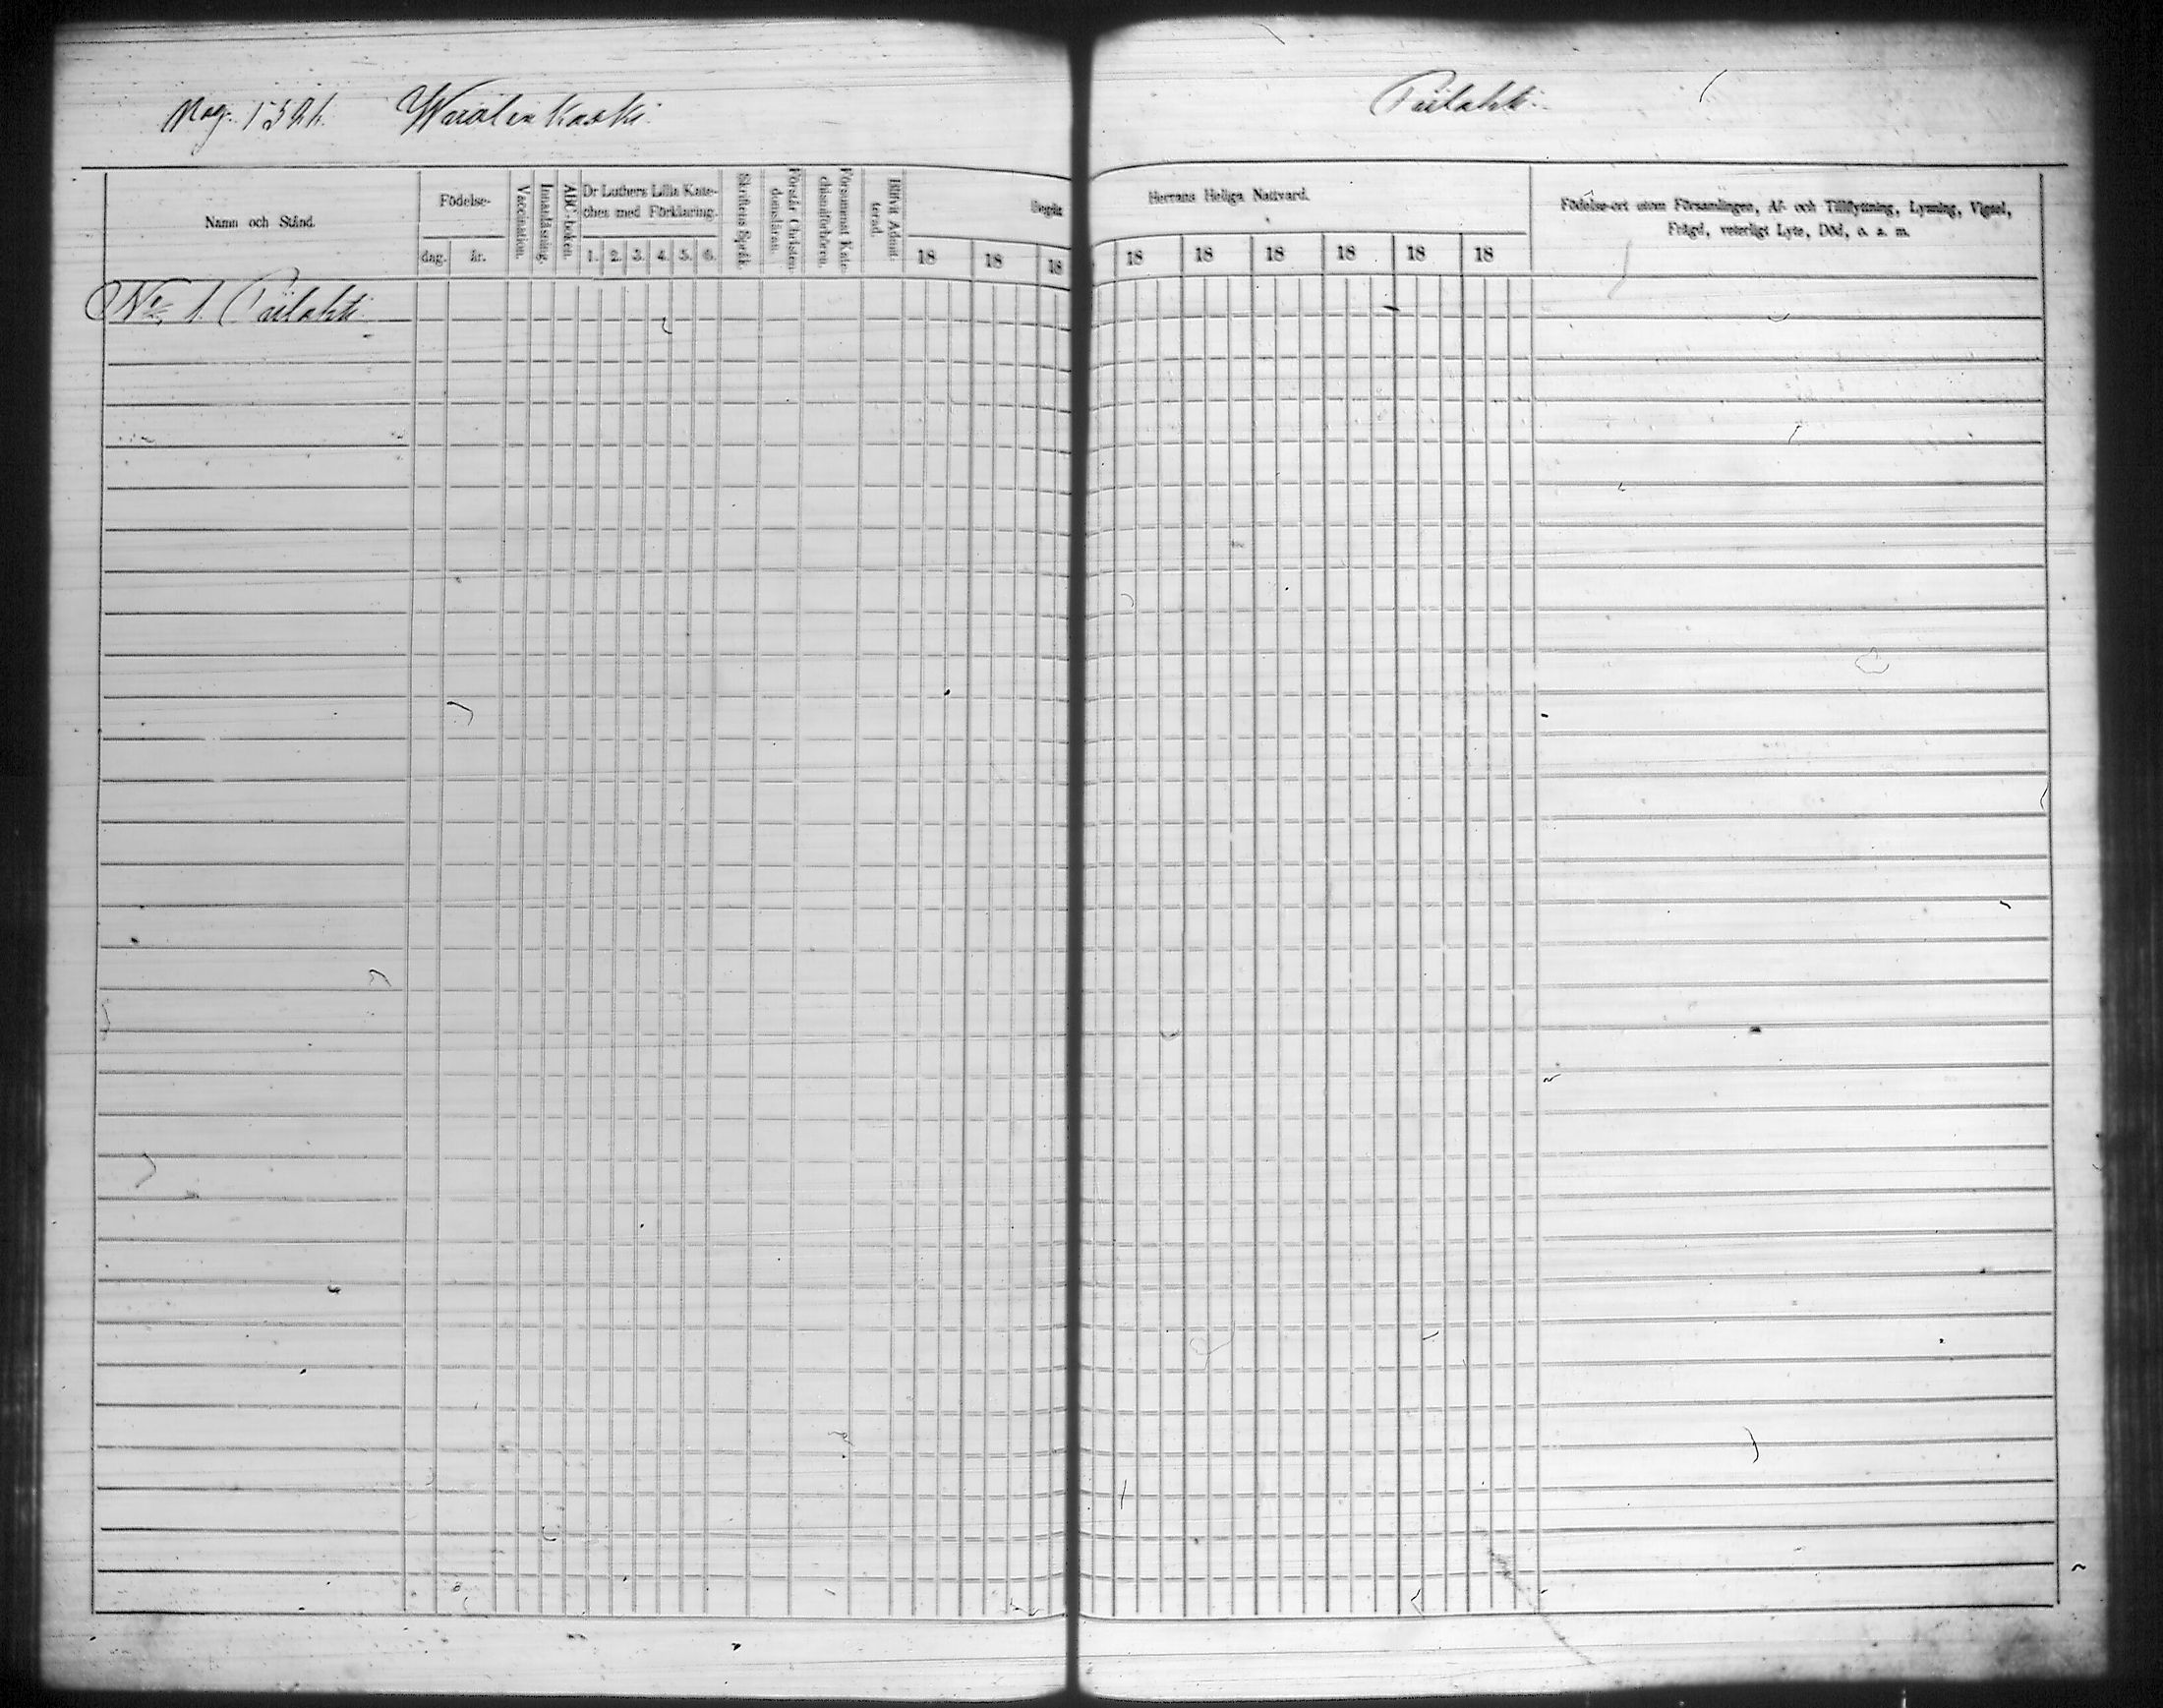 Pag. 1521. Wuolenkoski. Pailahti.
Namn och Stånd.
Födelse-
dag. år.
Vaccination.
Innanläsning.
ABC-boken.
Dr Luthers Lilla Kate-
ches med Förklaring.
1. 2. 3. 4. 5. 6.
Skriftens Språk.
Förstår Christen-
domsläran.
Försummat Kate-
chismiförhören.
Blifvit Admit-
terad.
Begått Herrans Heliga Nattvard.
18 18 18 18 18 18 18 18 18
Födelse-ort utom Församlingen, Af- och Tillflyttning, Lysning, Vigsel,
Frägd, veterligt Lyte, Död, o. s. m.
No 1. Pailahti